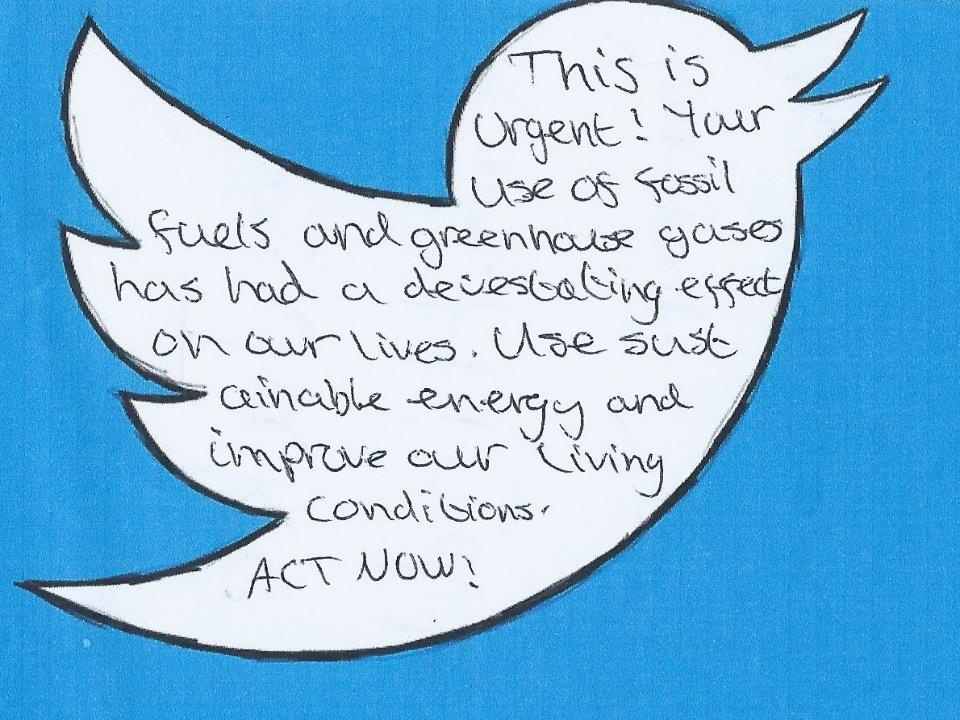 This is
Urgent! Your
use of fossil
fuels and greenhouse gases
has had a devestating effect
on our lives. Use sust
ainable energy and
improve our living
conditions.
ACT NOW!